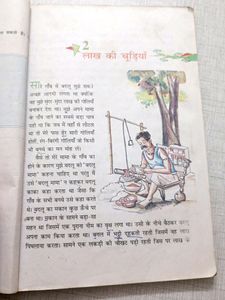 2
लाख की चूड़ियाँ
सारे गाँव में बदलू मुझे सबसे
अच्छा आदमी लगता था क्योंकि
वह मुझे सुंदर-सुंदर लाख की गोलियाँ
बनाकर देता था। मुझे अपने मामा
के गाँव जाने का सबसे बड़ा चाव
यही था कि जब मैं वहाँ से लौटता
था तो मेरे पास ढेर सारी गोलियाँ
होतीं, रंग-बिरंगी गोलियाँ जो किसी
भी बच्चे का मन मोह लें।
वैसे तो मेरे मामा के गाँव का
होने के कारण मुझे बदलू को 'बदलू
मामा' कहना चाहिए था परंतु मैं
उसे 'बदलू मामा' न कहकर बदलू
काका कहा करता था जैसा कि
गाँव के सभी बच्चे उसे कहा करते
थे। बदलू का मकान कुछ ऊँचे पर
बना था। मकान के सामने बड़ा-सा
सहन था जिसमें एक पुराना नीम का वृक्ष लगा था। उसी के नीचे बैठकर बदलू
अपना काम किया करता था। बगल में भट्ठी दहकती रहती जिसमें वह लाख
पिघलाया करता। सामने एक लकड़ी की चौखट पड़ी रहती जिस पर लाख के